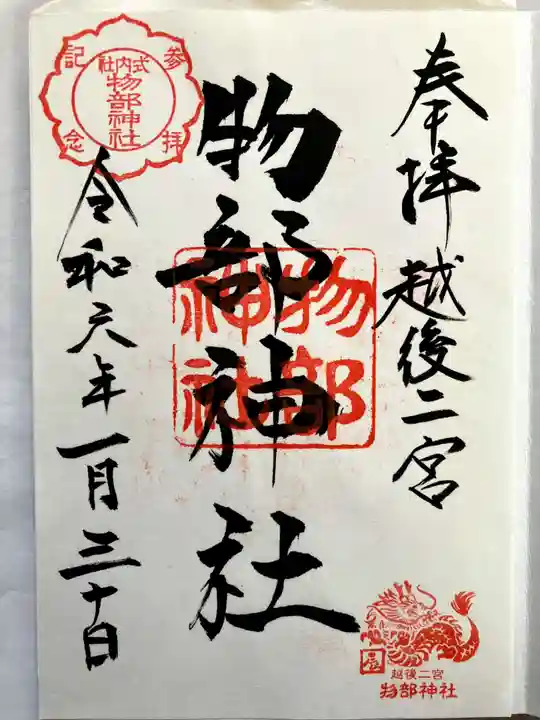 奉拝 越後二宮
物部神社
物部
神社
令和六年一月三十日
参拝
記念
式内社
物部神社
辰
越後二宮
物部神社